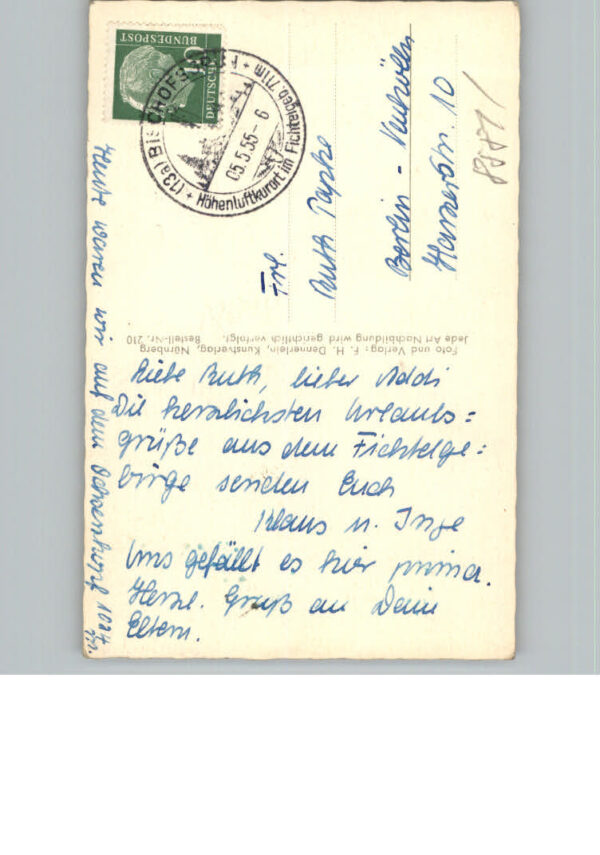 DEUTSCHE
BUNDESPOST
10
(13a) BISCHOFSGRÜN
05.5.55-6
Höhenluftkurort im Fichtelgeb. 711m
Frl.
Ruth Papke
Berlin - Neukölln
Harzerstr. 10
Foto und Verlag: F. H. Dennerlein, Kunstverlag, Nürnberg
Jede Art Nachbildung wird gerichtlich verfolgt. Bestell-Nr. 210
Liebe Ruth, lieber Addi
Die herzlichsten Urlaubs=
grüße aus dem Fichtelge=
birge senden Euch
Klaus u. Inge
Uns gefällt es hier prima.
Herzl. Gruß an Dein
Eltern.
Heute waren wir auf dem Ochsenkopf 1024 m.